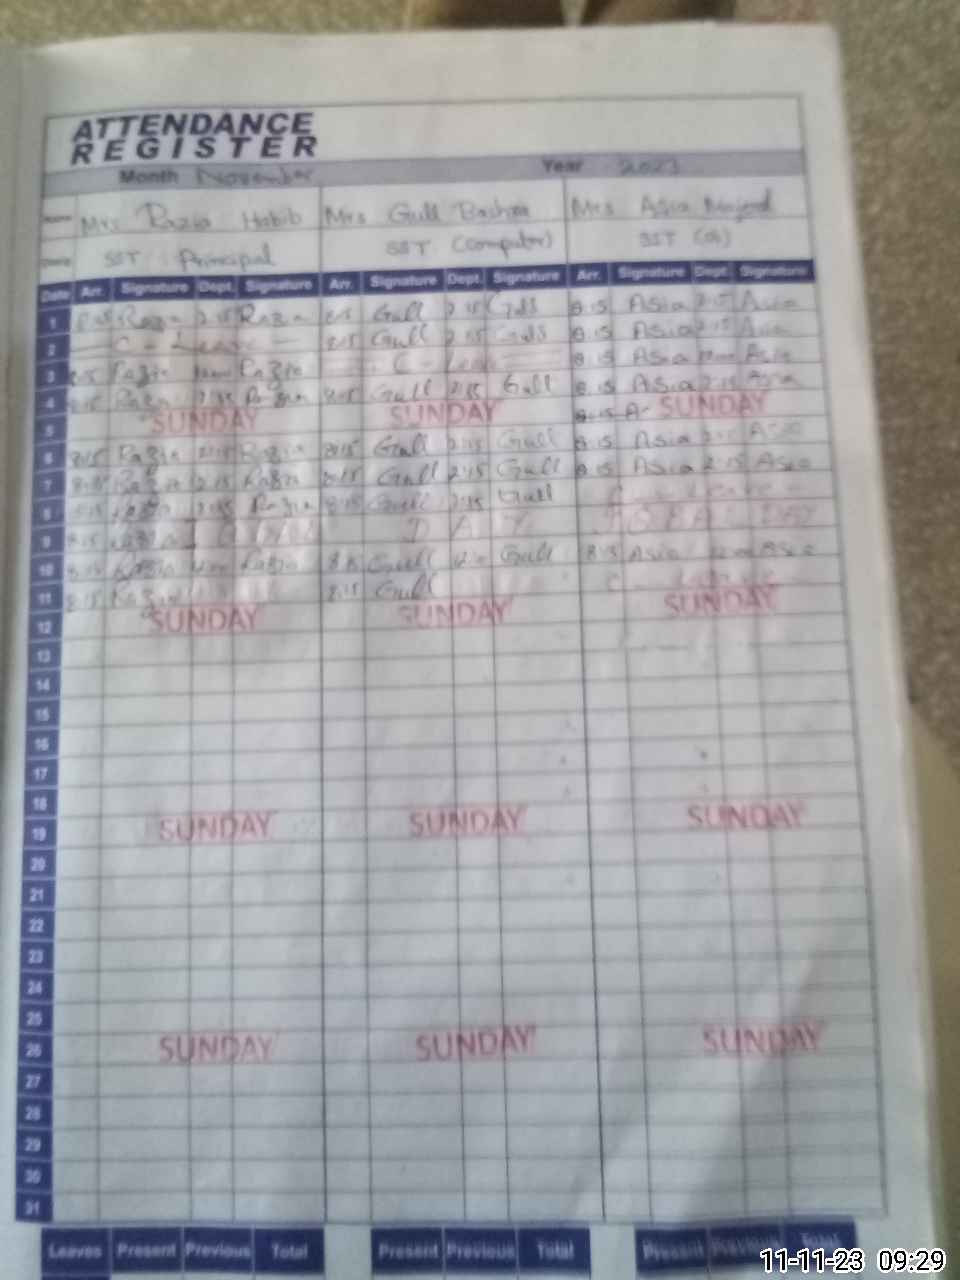 ATTENDANCE
REGISTER
Month November Year 2023
Name Mrs Razia Habib Mrs Gull Mrs Asia Majeed
SST Principal SST (Computer) SST
Date Arr. Signature Dept. Signature Arr. Signature Dept. Signature Arr. Signature Dept. Signature
1 Razia 2:15 Razia 8:15 Gull 2:15 Gull 8:15 Asia 2:15 Asia
2 C - Leave 8:15 Gull 2:15 Gull 8:15 Asia 2:15 Asia
3 8:15 Razia Razia C - Leave 8:15 Asia Asia
4 8:15 Razia Razia 8:15 Gull 2:15 Gull 8:15 Asia 2:15 Asia
5 SUNDAY SUNDAY 8:15 A SUNDAY
6 8:15 Razia 2:15 Razia 8:15 Gull 2:15 Gull 8:15 Asia Asia
7 Razia 2:15 Razia 8:15 Gull 2:15 Gull 8:15 Asia 2:15 Asia
8 8:15 Razia Razia 8:15 Gull 2:15 Gull C Leave
9 8:15 Razia I Q B A L D A Y IQBAL DAY
10 8:15 Razia Razia Gull Gull 8:15 Asia Asia
11 8:15 Razia 8:15 Gull C Leave
12 SUNDAY SUNDAY SUNDAY
13
14
15
16
17
18
19 SUNDAY SUNDAY SUNDAY
20
21
22
23
24
25
26 SUNDAY SUNDAY SUNDAY
27
28
29
30
31
Leaves Present Previous Total Present Previous Total Present Previous Total
11-11-23 09:29